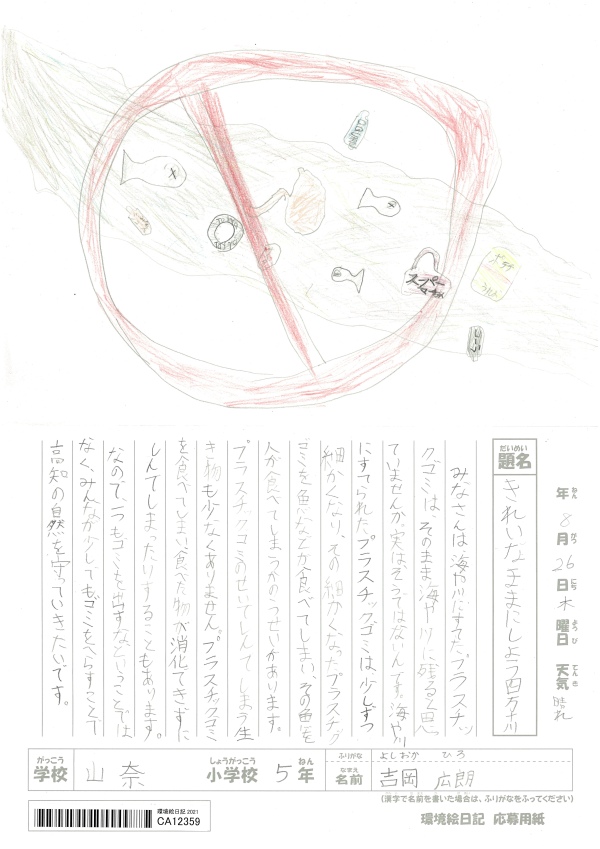 スーパー
ポテチ
年 8月 26日 木曜日 天気 晴れ
ねん がつ にち ようび てんき
だいめい
題名
きれいなままにしよう四万十川
みなさんは、海や川にすてたプラスチッ
クゴミは、そのまま海や川に残ると思っ
ていませんか。実はそうではないんです。海や川
にすてられたプラスチックゴミは少しずつ
細かくなり、その細かくなったプラスチック
ゴミを魚などが食べてしまい、その魚を
人が食べてしまうかのうせいがあります。
プラスチクゴミのせいでしんでしまう生
き物も少なくありません。プラスチックゴミ
を食べてしまい食べた物が消化できずに
しんでしまったりすることもあります。
なので、一つもゴミを出すなということでは
なく、みんなが少しでもゴミをへらすことで
高知の自然を守っていきたいです。
がっこう しょうがっこう ねん ふりがな よしおか ひろ
学校 山奈 小学校 5年 なまえ 名前 吉岡 広朗
(漢字で名前を書いた場合は、ふりがなをふってください)
環境絵日記 2021
CA12359
環境絵日記 応募用紙